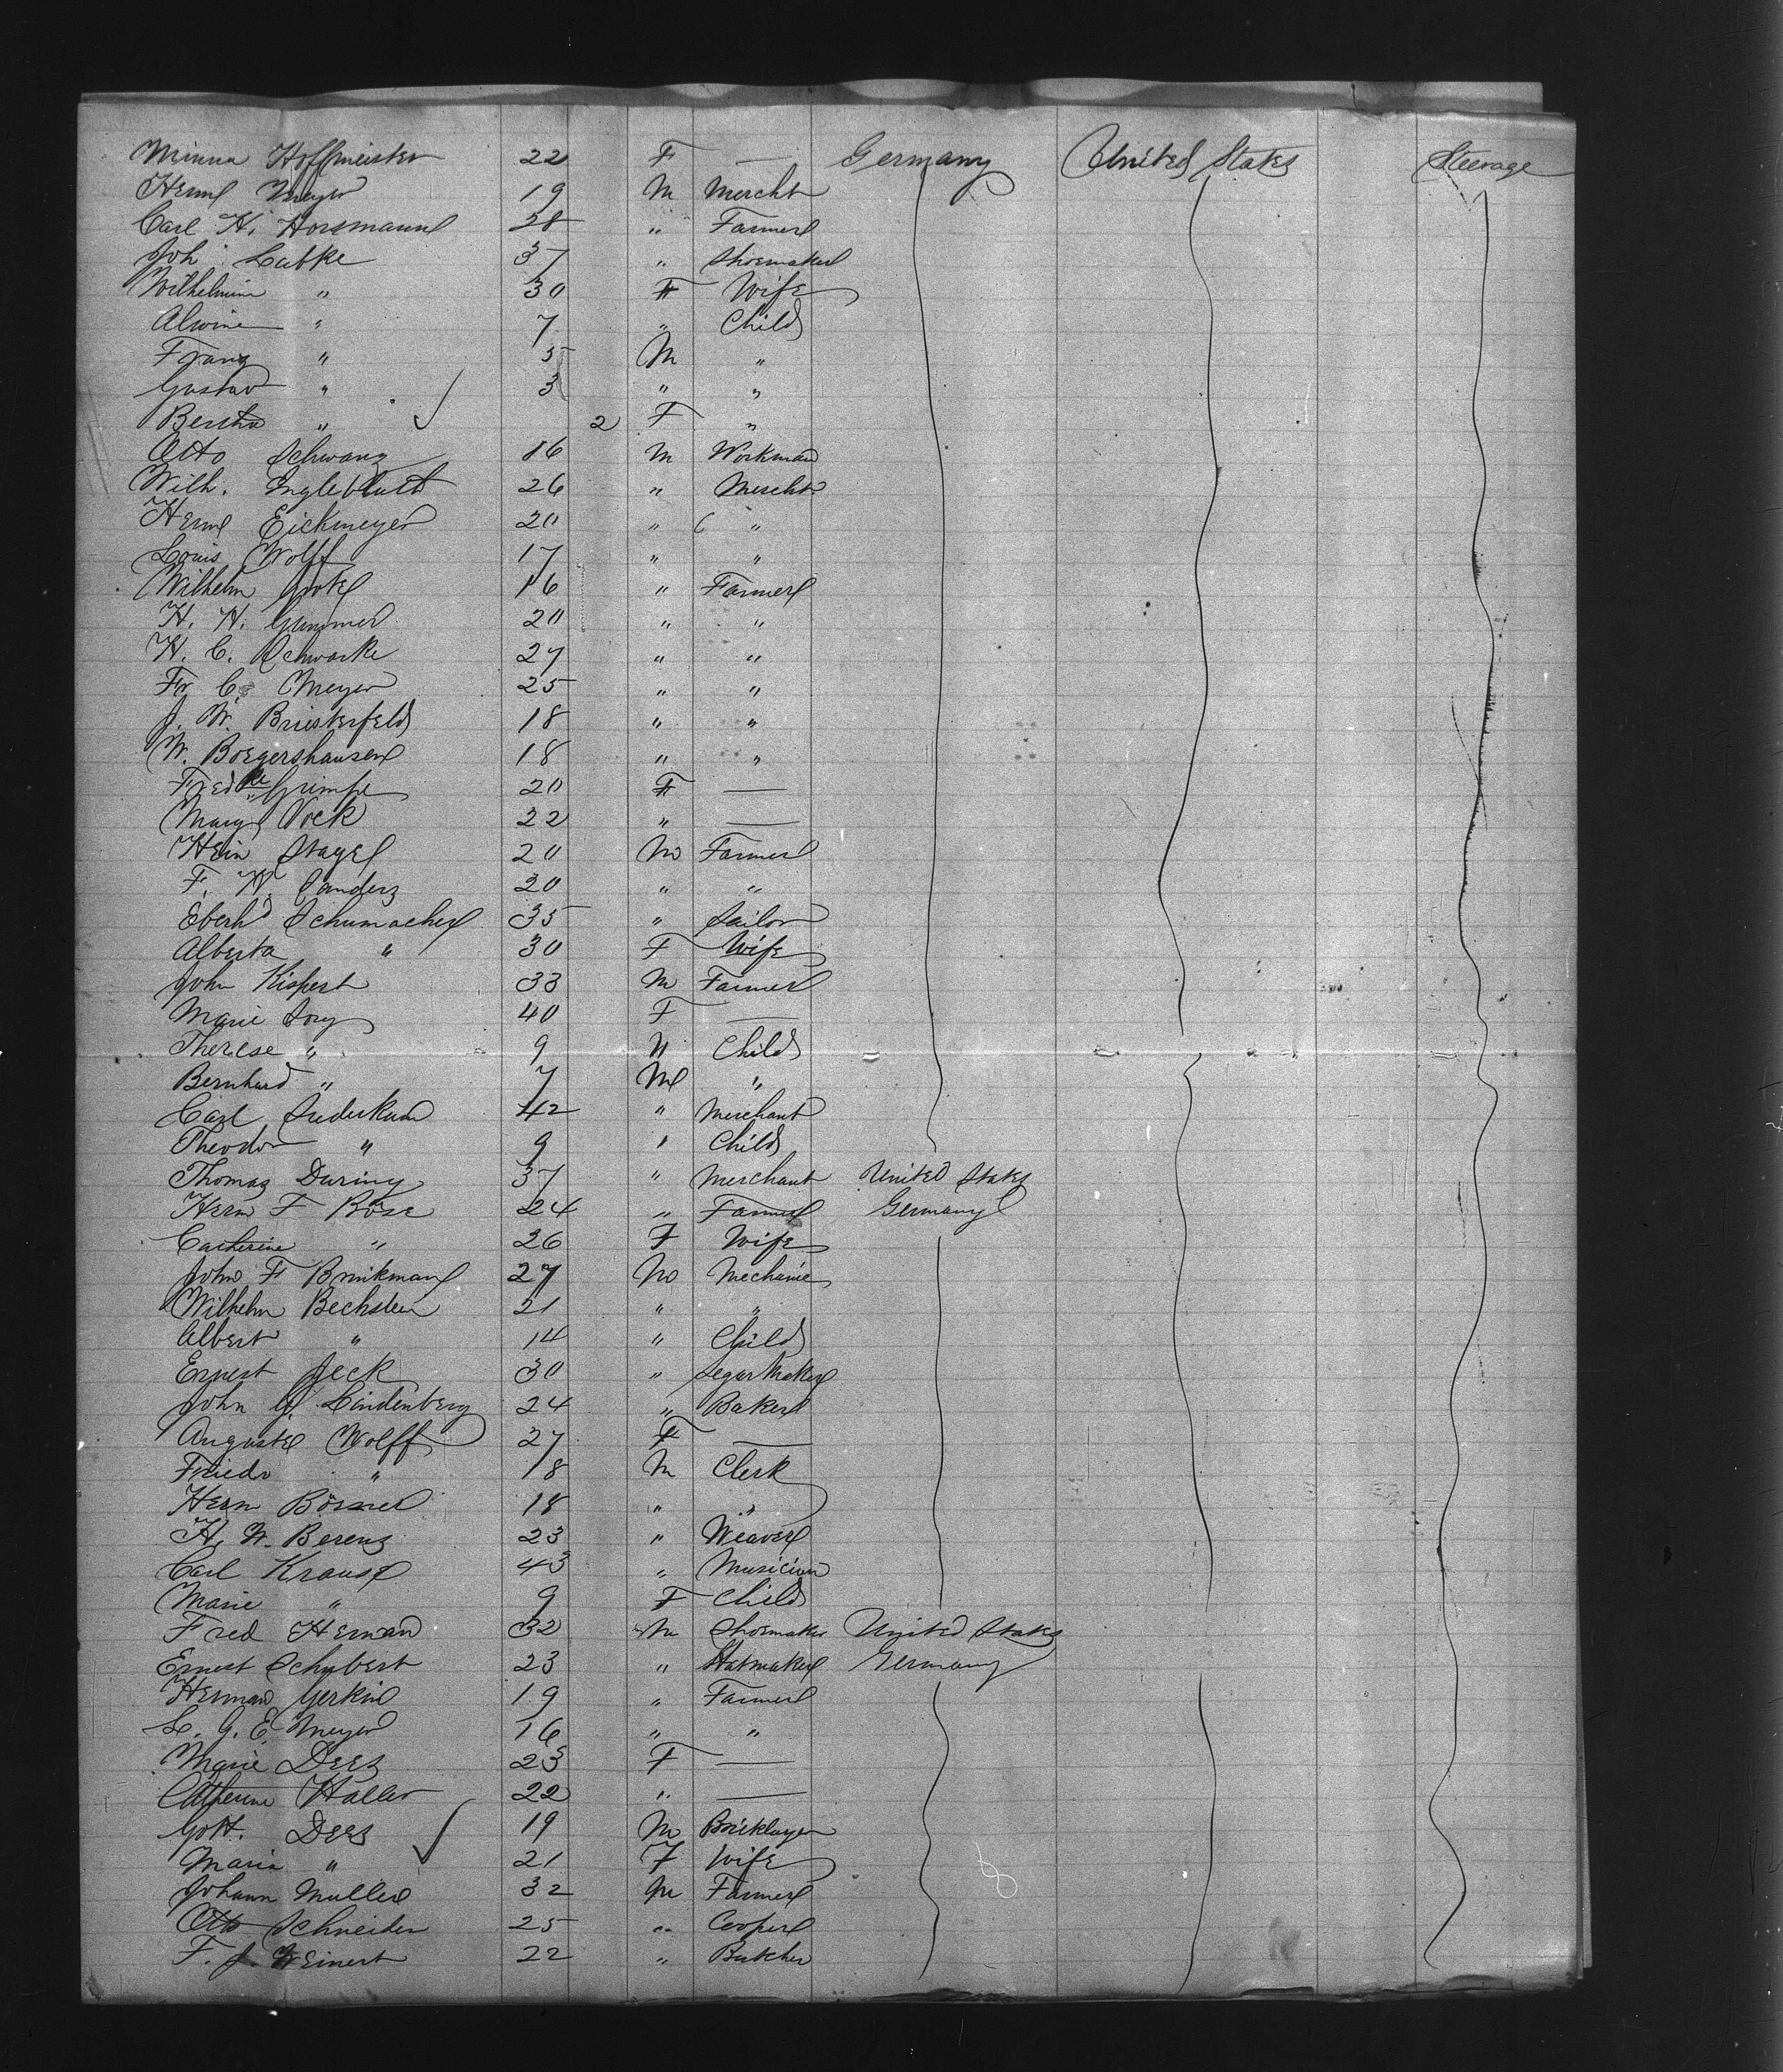 Minna Hoffmeister 22 F — Germany United States Steerage
Herm Meyer 19 M Mercht
Carl H. Horsmann 28 " Farmer
Joh. Lubke 37 " Shoemaker
Wilhelmine " 30 F Wife
Alwine " 7 " Child
Franz " 5 M "
Gustav " 3 " "
Bertha " 2 F "
Otto Schwanz 16 M Workman
Wilh. 26 " Mercht
Herm Eickmeyer 20 " "
Louis Wolff 17 " "
Wilhelm 16 " Farmer
H. H. 20 " "
H. C. Schwarke 27 " "
Fr. C. Meyer 25 " "
J. W. Bruisterfeld 18 " "
W. Boegershausen 18 " "
Fredke Grimpe 20 F —
Mary Vock 22 " —
Hein Stagel 20 M Farmer
F. W. Sanders 20 " "
Eberhd Schumacher 35 " Sailor
Alberta " 30 F Wife
John Kispert 33 M Farmer
Marie 40 F —
Therese " 9 " Child
Bernhard " 7 M "
Carl Suderkum 42 " Merchant
Theodor " 9 " Child
Thomas During 37 " Merchant United States
Herm F Böse 24 " Farmer Germany
Catherine " 26 F Wife
John F Brinkman 27 M Mechanic
Wilhelm Bechstein 21 " "
Albert " 14 " Child
Ernest Jeck 30 " Segar Maker
John G. Lindenberg 24 " Baker
Auguste Wolff 27 F —
Friedr " 18 M Clerk
Herm Börner 18 " "
H. W. Berens 23 " Weaver
Carl Krause 43 " Musician
Marie " 9 F Child
Fred Heman 32 M Shoemaker United States
Ernest Schubert 23 " Hatmaker Germany
Herman Gerkin 19 " Farmer
L. G. E. Meyer 16 " "
Marie Dees 23 F —
Catherine Haller 22 " —
Gott. Dees 19 M Bricklayer
Maria " 21 F Wife
Johann Muller 32 M Farmer
Otto Schneider 25 " Cooper
F. J. Weinert 22 " Butcher